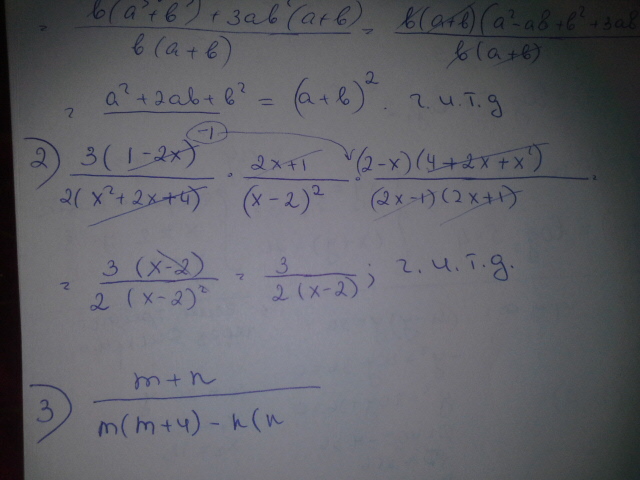 = b(a³+b³) + 3ab²(a+b) / b(a+b) = b(a+b)(a²-ab+b²+3ab / b(a+b)
= a²+2ab+b² = (a+b)². ч.и.т.д
2) 3(1-2x) / 2(x²+2x+4) · 2x+1 / (x-2)² · (2-x)(4+2x+x²) / (2x-1)(2x+1) =
-1
= 3(x-2) / 2(x-2)² = 3 / 2(x-2); ч.и.т.д.
3) m+n / m(m+4) - n(n